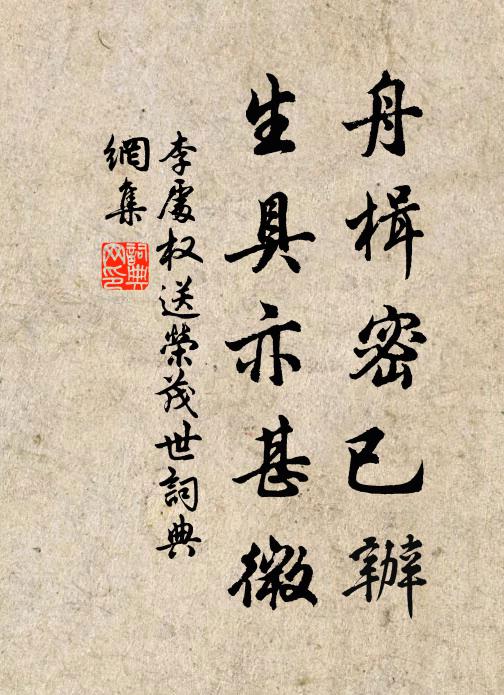 舟楫密已辦
生具亦甚微
李處权送榮茂世詞典
網集
詞典
网印